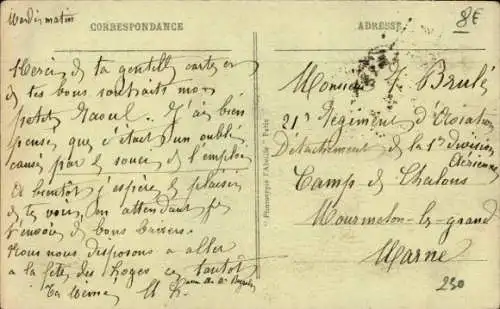 Mardi matin
CORRESPONDANCE
Merci de ta gentille carte et
de tes bons souhaits mon
petit Raoul. J'ai bien
pensé que c'était un oubli
causé par le souci de l'emploi
A bientôt j'espère le plaisir
de te voir, en attendant je
t'envoie de bons baisers.
Nous nous disposons à aller
à la fête des Loges cet tantôt
Ta
ADRESSE
8E
Monsieur Brulé
21e Régiment d'Aviation
Détachement de la 1re Division
Aérienne
Camp de Chalons
Mourmelon-le-grand
Marne
230